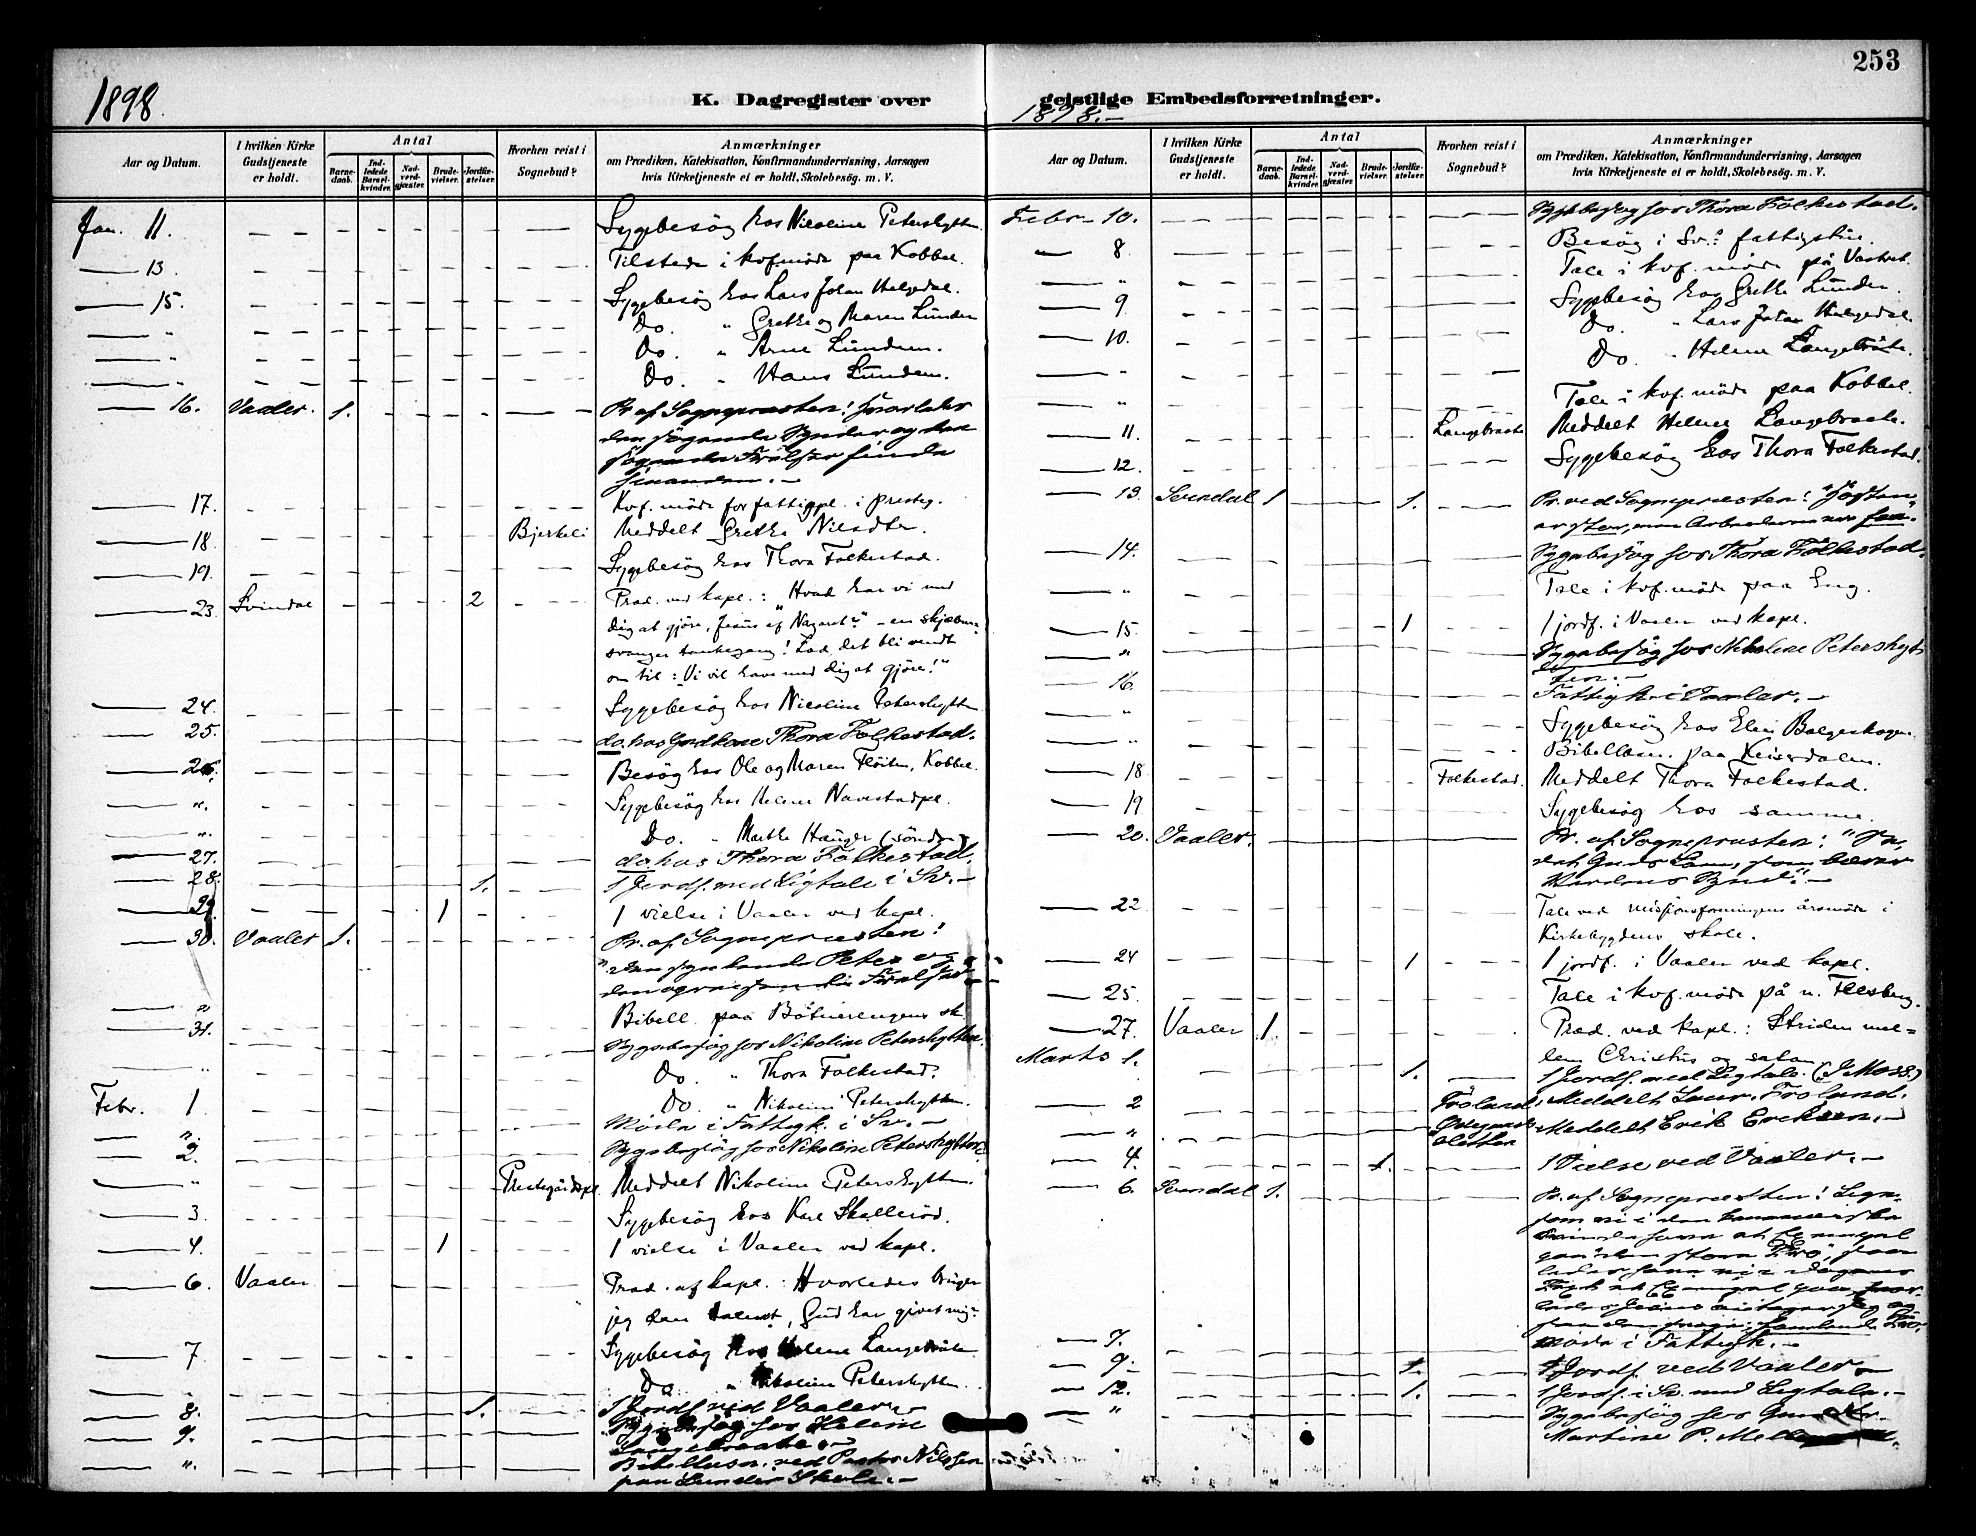 253
1898.
K. Dagregister over geistlige Embedsforretninger.
1898.-
Aar og Datum.
I hvilken Kirke Gudstjeneste er holdt.
Antal
Barnedaab.
Indledede Barselkvinder.
Nadverdgjæster.
Brudevielser.
Jordfæstelser.
Hvorhen reist i Sognebud?
Anmærkninger
om Prædiken, Katekisation, Konfirmandundervisning, Aarsagen
hvis Kirketjeneste ei er holdt, Skolebesøg. m. V.
Jan. 11. Sygebesög hos Nicoline Petershytten.
13. Tilstede i kof.möde paa Kobbel.
15. Sygebesög hos Lars Johan Helgedal.
" Do. " Grethe og Maren Lunden
" Do. " Arne Lunden.
" Do. " Hans Lunden.
16. Vaaler. 1. Pr. af Sognepresten: Hvorledes
den søgende Synder og den
søgende Frelser finde
hinanden.-
17. Kof. möde for fattigpl. i presteg.
18. Bjerkeli Meddelt Grethe Nilsdter.
19. Sygebesög hos Thora Folkestad.
23. Svindal 2 Præd. ved kapl.: "Hvad har vi med
dig at gjöre, Jesus af Nazaret?" - en skjæbne-
svanger tankegang! Lad det bli vendt
om til: "Vi vil have med dig at gjöre!"
24. Sygebesög hos Nicoline Petershytten
25. do. hos Thora Folkestad.
26. Besög hos Ole og Maren Flöiten, Kobbel.
". Sygebesög hos Helene Navestadpl.
". Do. " Marthe Haugen (söndre)
27. do. hos Thora Folkestad.
28. 1. 1 Jordf. med Ligtale i Sv.-
29. 1 1 vielse i Vaaler ved kapl.
30. Vaaler 1. Pr. af Sognepresten:
" Den synkende Peter og
den opreisende Frelser
" Bibell. paa Bötnerengens sk.
31. Sygebesøg hos Nikoline Petershytten.
" Do. " Thora Folkestad.
Febr. 1. Do. " Nikoline Petershytten.
". Möde i Fattigk. i Sv.-
2. Sygebesøg hos Nikoline Petershytten.
" Prestegårdspl. Meddelt Nikoline Petershytten.
3. Sygebesög hos Karl Skalleröd.
4. 1 1 vielse i Vaaler ved kapl.
6. Vaaler Præd. af kapl.: Hvorledes bruger
jeg den talent, Gud har givet mig?
7. Sygebesög hos Helene Langebråten
" Do. " Nikoline Petershytten.
8. 1. 1 Jordf. ved Vaaler.-
9. Sygebesøg hos Helene
Langebraate.-
". Bibellæsn. ved Pastor Nilssen
paa Lunder Skole.-
Aar og Datum.
I hvilken Kirke Gudstjeneste er holdt.
Antal
Barnedaab.
Indledede Barselkvinder.
Nadverdgjæster.
Brudevielser.
Jordfæstelser.
Hvorhen reist i Sognebud?
Anmærkninger
om Prædiken, Katekisation, Konfirmandundervisning, Aarsagen
hvis Kirketjeneste ei er holdt, Skolebesøg. m. V.
Febr. 10. Sygebesøg hos Thora Folkestad.
8 Besög i Sv.s fattighus.
" Tale i kof. möde på
9 Sygebesög hos Grethe Lunden.
10. Do. " Lars Johan Helgedal.
" Do. " Helene Langebråte.
" Tale i kof. möde paa Kobbel.
11. Langebraate Meddelt Helene Langebraate.
12. Sygebesög hos Thora Folkestad.
13. Svindal 1 1. Pr. ved Sognepresten: "Høsten
er stor, men Arbeiderne ere faa".
14. Sygebesøg hos Thora Folkestad.
" Tale i kof. möde paa Eng.
15. 1 1 jordf. i Vaaler ved kapl.
" Sygebesøg hos Nikoline Petershyt-
ten.-
16. Fattigk. i Vaaler.-
" Sygebesög hos Elen Bolgeskogen.
" Bibellæsn. paa Keiserdalen.
18 Folkestad. Meddelt Thora Folkestad.
19 Sygebesög hos samme.
20. Vaaler. Pr. af Sognepresten: "Se,
det Guds Lam, som bærer
Verdens Synd".-
22 Tale ved missjonsforeningens årsmöde i
Kirkebygdens skole.
24 1 1 jordf. i Vaaler ved kapl.
25. Tale i kof. möde på n. Flesberg.
27. Vaaler 1. Præd. ved kapl.: Striden mel-
lem Christus og satan
Marts 1. 1. 1 Jordf. med Ligtale. (I Moss.)
2 Fröland. Meddelt Laur. Fröland.
" Meddelt Erik Eriksen.-
4. 1. 1 Vielse ved Vaaler.-
6. Svindal 1. Pr. af Sognepresten: Ligesom
7. Möde i Fattigk.-
9. 1. 1 Jordf. ved Vaaler.-
12. 1. 1 Jordf. i Sv. med Ligtale.-
" Sygebesøg hos
Martine P.